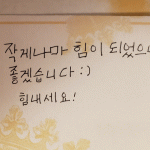 작게나마 힘이 되었으
좋겠습니다 :)
힘내세요!